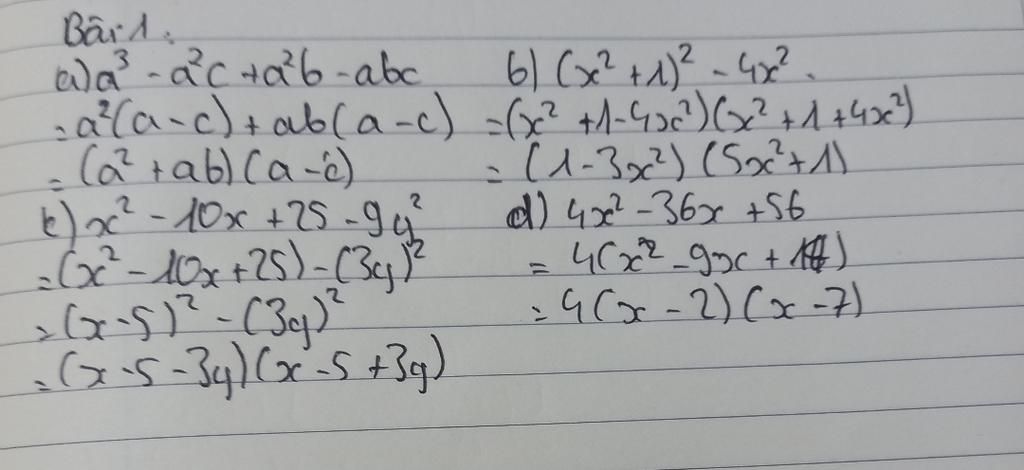 Bài 1:
a) a³ - a²c + a²b - abc
= a²(a - c) + ab(a - c)
= (a² + ab)(a - c)
b) (x² + 1)² - 4x².
= (x² + 1 - 4x²)(x² + 1 + 4x²)
= (1 - 3x²)(5x² + 1)
c) x² - 10x + 25 - 9y²
= (x² - 10x + 25) - (3y)²
= (x - 5)² - (3y)²
= (x - 5 - 3y)(x - 5 + 3y)
d) 4x² - 36x + 56
= 4(x² - 9x + 14)
= 4(x - 2)(x - 7)